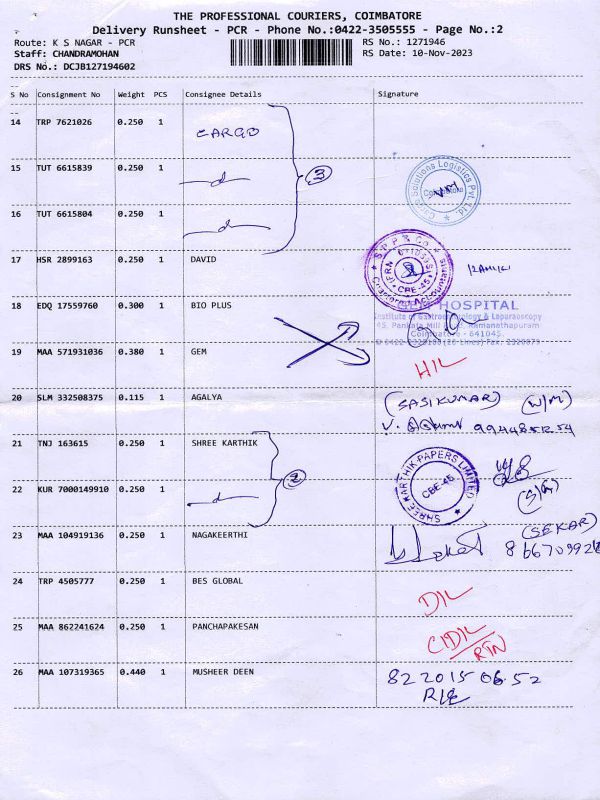 THE PROFESSIONAL COURIERS, COIMBATORE
Delivery Runsheet - PCR - Phone No.:0422-3505555 - Page No.:2
Route: K S NAGAR - PCR
RS No.: 1271946
Staff: CHANDRAMOHAN
RS Date: 10-Nov-2023
DRS No.: DCJB127194602
S No Consignment No Weight PCS Consignee Details Signature
14 TRP 7621026 0.250 1 CARGO
15 TUT 6615839 0.250 1
3
Cargo Solutions Logistics Pvt. Ltd.
16 TUT 6615804 0.250 1
17 HSR 2899163 0.250 1 DAVID
S P P & Co
Chartered Accountants
CBE-45
18 EDQ 17559760 0.300 1 BIO PLUS
GEM HOSPITAL
Institute of Gastroenterology & Laparoscopy
45, Pankaja Mill Road, Ramanathapuram
Coimbatore - 641045.
19 MAA 571931036 0.380 1 GEM
H/L
20 SLM 332508375 0.115 1 AGALYA
(SASIKUMAR) (W/M)
21 TNJ 163615 0.250 1 SHREE KARTHIK
2
SHREE KARTHIK PAPERS LIMITED
CBE-45
22 KUR 7000149910 0.250 1
23 MAA 104919136 0.250 1 NAGAKEERTHI
(SEKAR)
24 TRP 4505777 0.250 1 BES GLOBAL
D/L
25 MAA 862241624 0.250 1 PANCHAPAKESAN
RTN
26 MAA 107319365 0.440 1 MUSHEER DEEN
82 2015 06 52